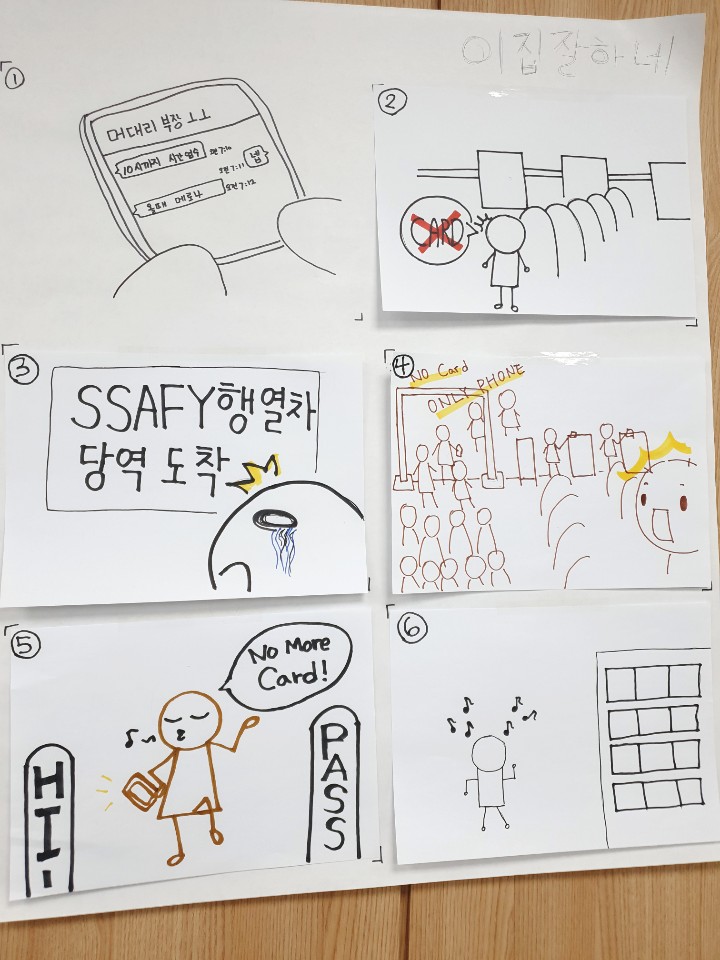 이집잘하네
①
머대리 부장 ㅗㅗ
10시까지 시간엄수 오전 7:10
넵
오전 7:11
올때 메로나 오전 7:12
②
CARD
③
SSAFY행열차
당역 도착
④
No Card
ONLY PHONE
⑤
No More
Card!
HI-
PASS
⑥